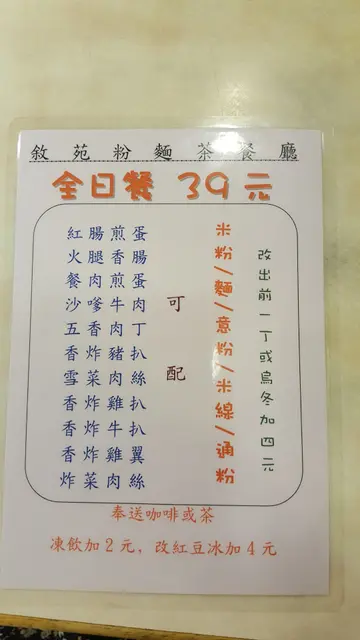 敘苑粉麵茶餐廳
全日餐 39元
紅腸煎蛋
火腿香腸
餐肉煎蛋
沙嗲牛肉
五香肉丁
香炸豬扒
雪菜肉絲
香炸雞扒
香炸牛扒
香炸雞翼
炸菜肉絲
可配
米粉/麵/意粉/米線/通粉
改出前一丁或烏冬加四元
奉送咖啡或茶
凍飲加2元，改紅豆冰加4元